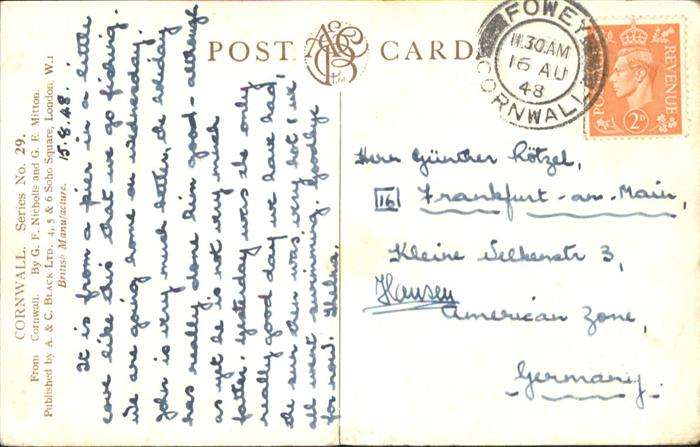 POST CARD
CORNWALL. Series No. 29.
From Cornwall. By G. F. Nicholls and G. E. Mitton.
Published by A. & C. BLACK LTD. 4, 5 & 6 Soho Square, London, W.1
British Manufacture.
15.8.48.
It is from a pier in a little
cove like this that we go fishing.
We are going home on Wednesday.
John is very much better, the holiday
has really done him good - although
as yet he is not very much
fatter. Yesterday was the only
really good day we have had,
the sun then was very hot & we
all went swimming. Goodbye
for now. Thelma.
FOWEY
11.30 AM
16 AU
48
CORNWALL
POSTAGE REVENUE
2D
Herr Günther Kötzel,
16 Frankfurt-am-Main,
Kleine Nelkenstr 3,
Hausen
American Zone,
Germany.